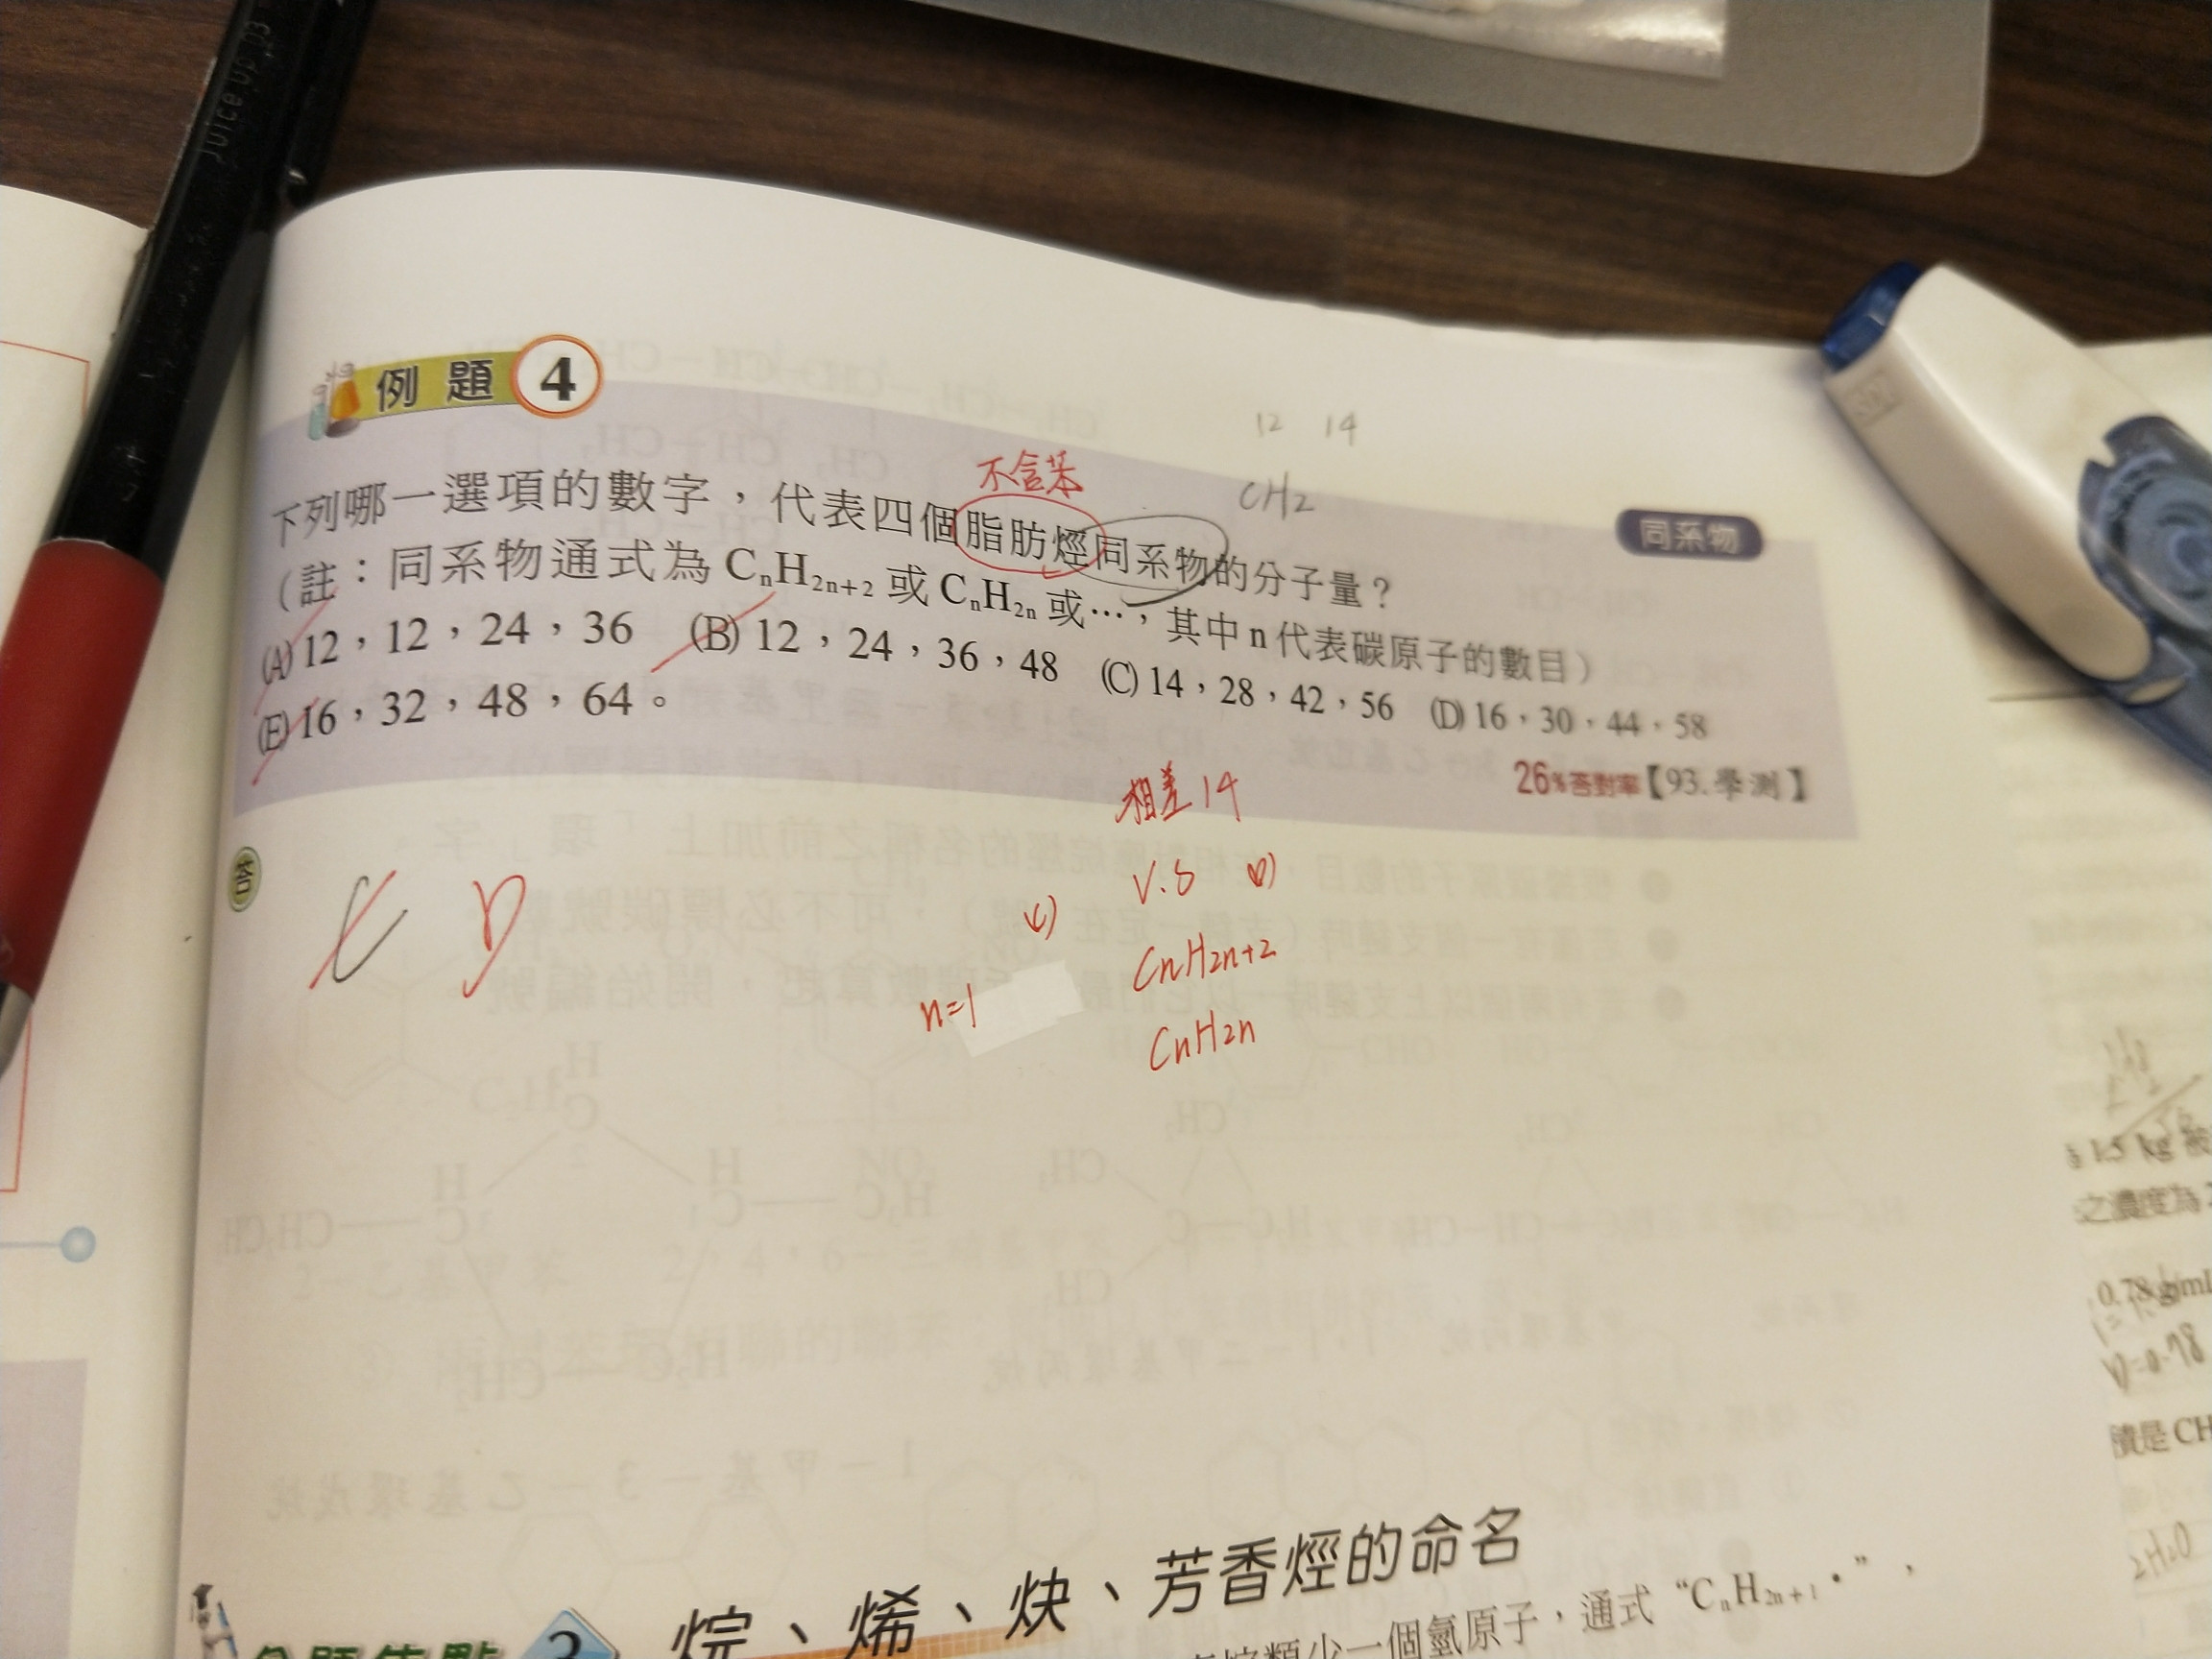 Juice up 03
例題 4
12 14
CH2
不含苯
同系物
下列哪一選項的數字，代表四個脂肪烴同系物的分子量？
（註：同系物通式為 CnH2n+2 或 CnH2n 或…，其中 n 代表碳原子的數目）
(A) 12，12，24，36 (B) 12，24，36，48 (C) 14，28，42，56 (D) 16，30，44，58
(E) 16，32，48，64。
26%答對率【93.學測】
相差 14
答
C D
(C) V.S (D)
n=1
CnH2n+2
CnH2n
1.5 kg
之濃度為
0.78 g/mL
V=0.78
積是 CH
2H2O
3 烷、烯、炔、芳香烴的命名
烷類少一個氫原子，通式“CnH2n+1•”，